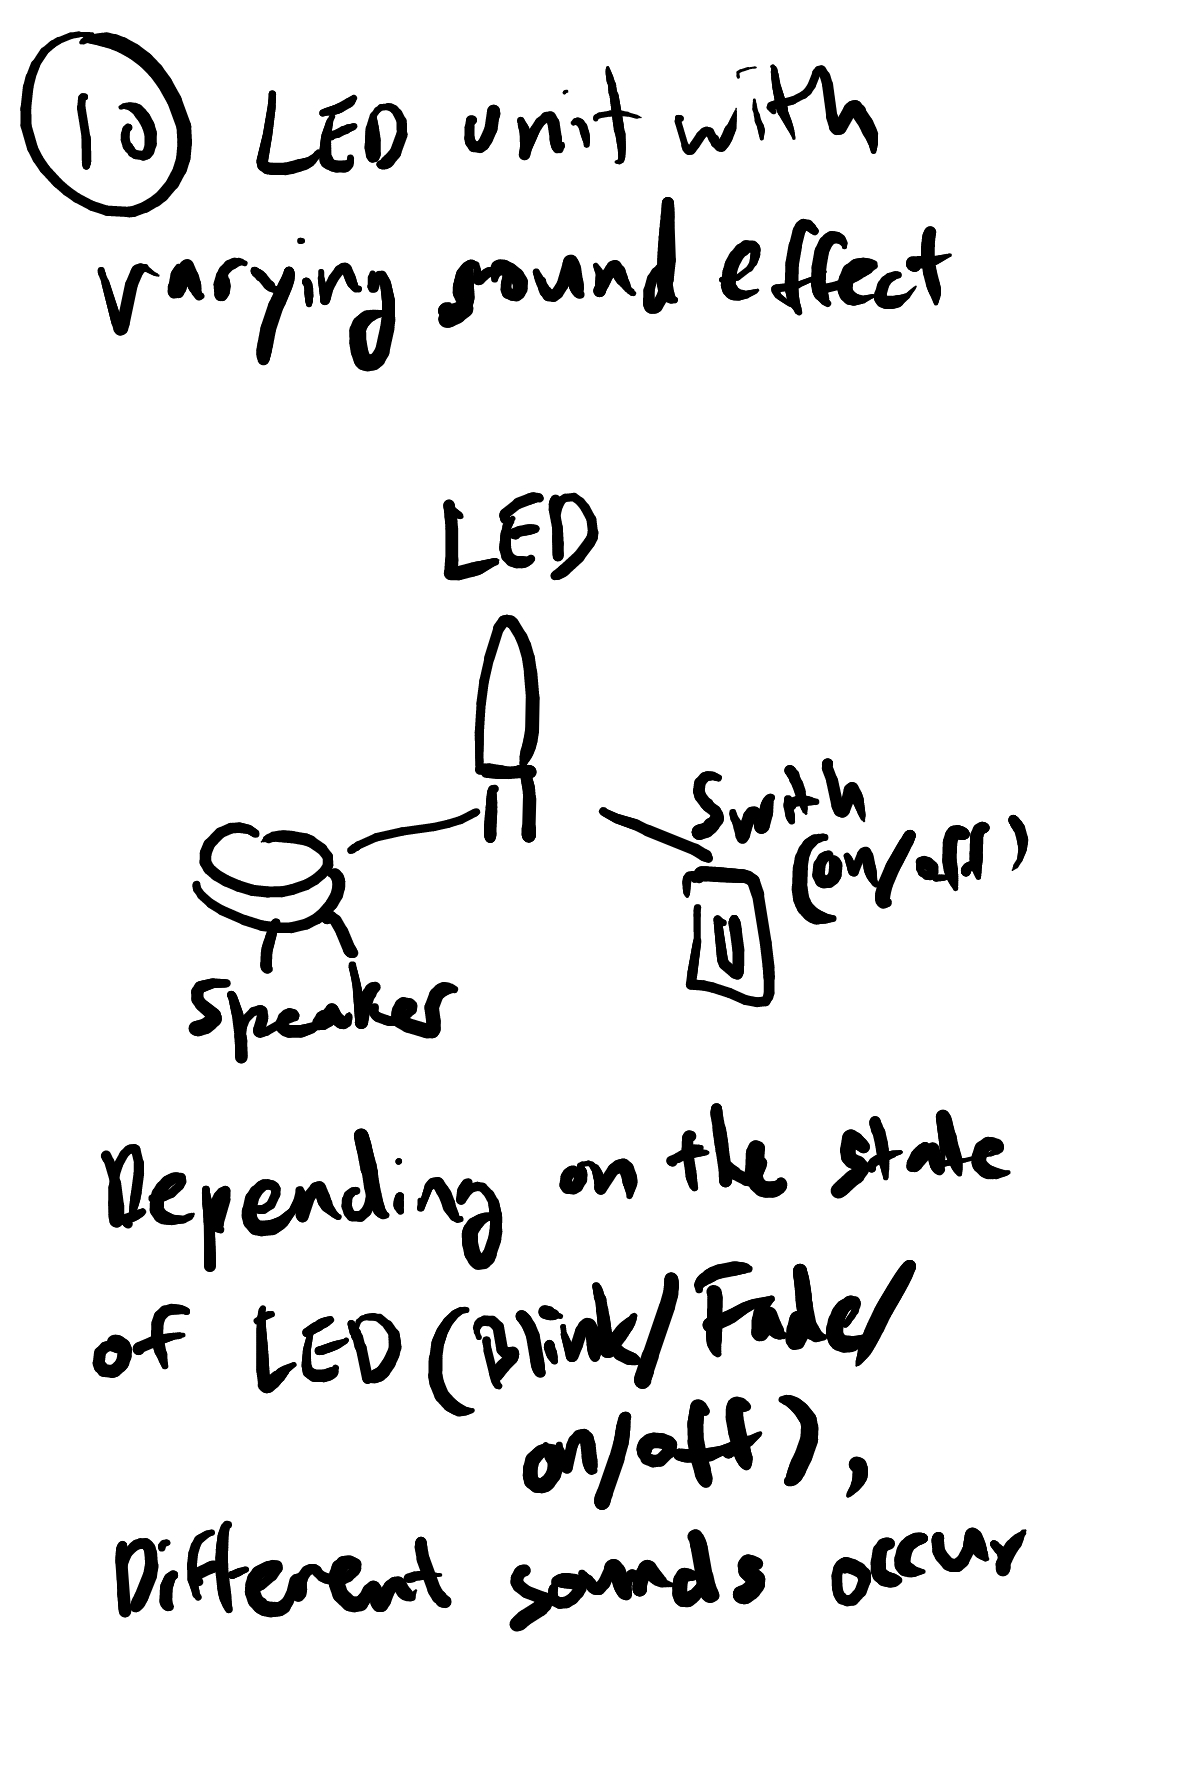 10 LED unit with
varying sound effect
LED
Swith
(on/off)
Speaker
Depending on the state
of LED (Blink/Fade/
on/off),
Different sounds occur